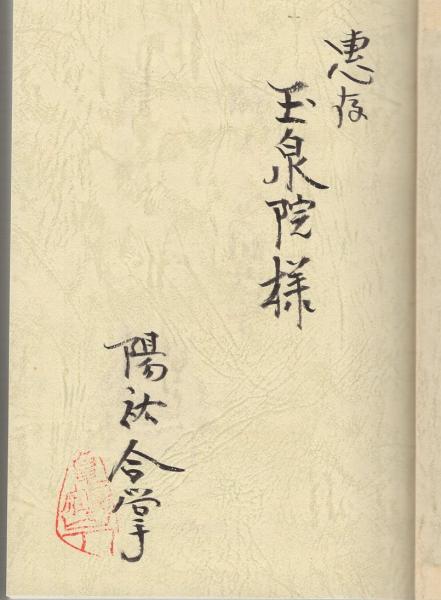 恵存
玉泉院様
陽祐合掌